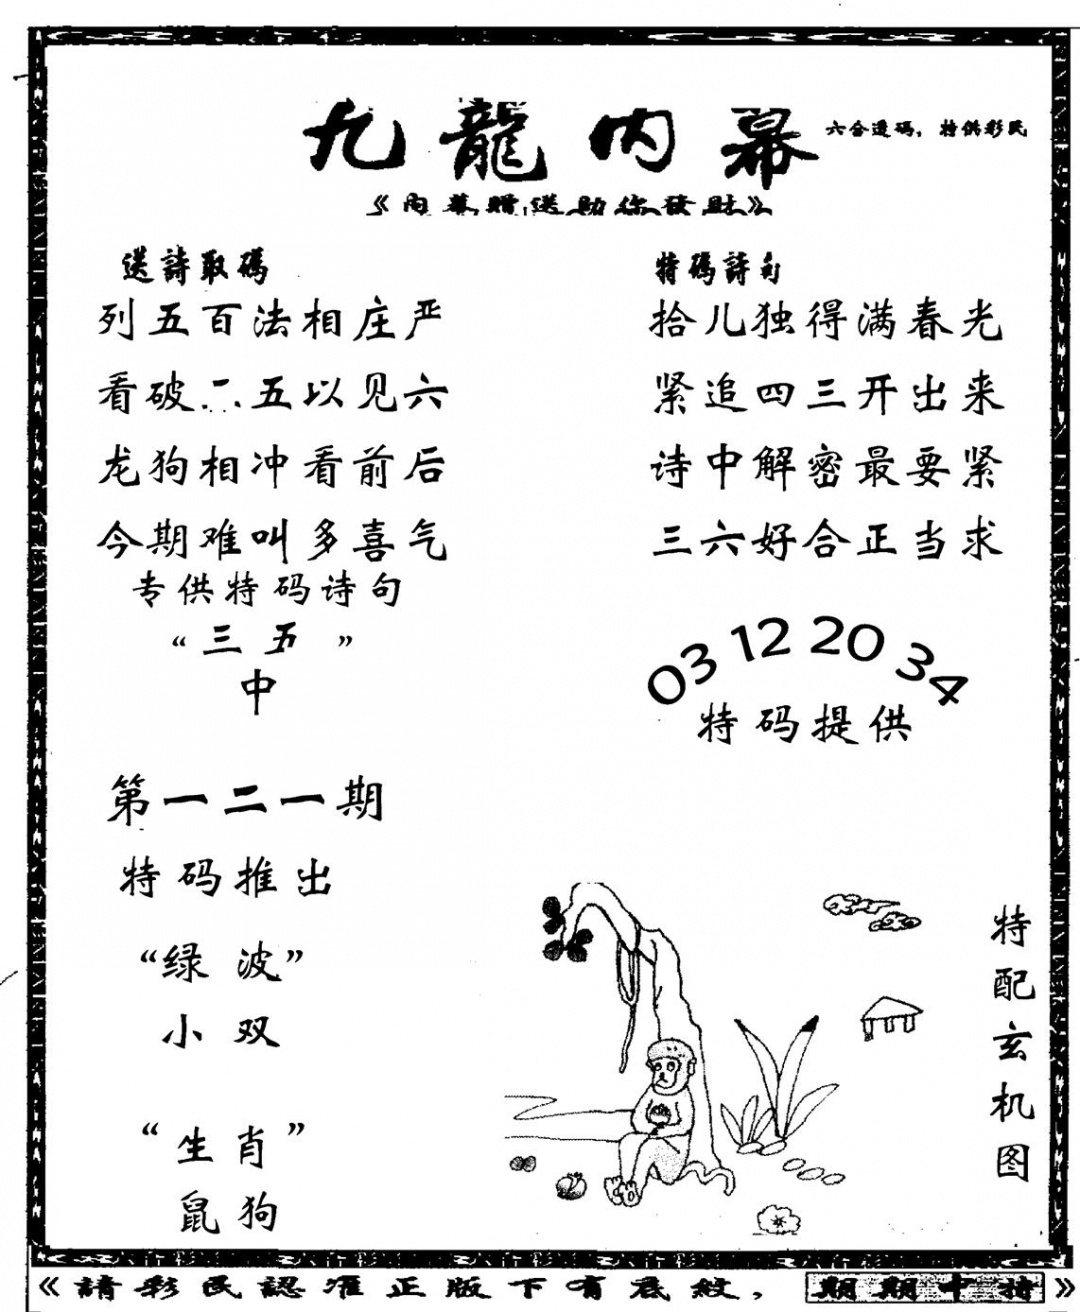 九龍內幕
六合透碼，特供彩民
《内幕贈送助你發財》
送詩取碼
列五百法相庄严
看破二五以见六
龙狗相冲看前后
今期难叫多喜气
专供特码诗句
“三五”
中
特碼詩句
拾儿独得满春光
紧追四三开出来
诗中解密最要紧
三六好合正当求
03 12 20 34
特码提供
第一二一期
特码推出
“绿波”
小双
“生肖”
鼠狗
特配玄机图
《請彩民認准正版下有底紋，期期中特》